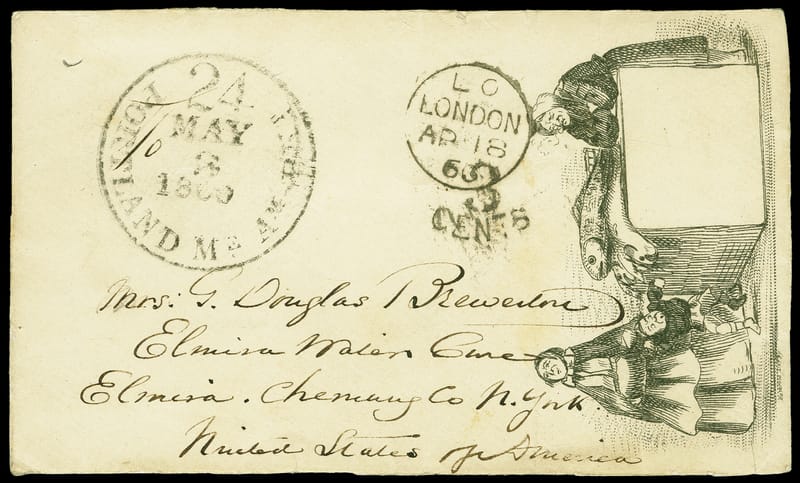 24
MAY
3
1860
FOREIGN
PORTLAND Me Am. PKT
To
LO
LONDON
AP 18
60
3
CENTS
Mrs: G. Douglas Brewerton
Elmira Water Cure
Elmira. Chemung Co N. York.
United States of America